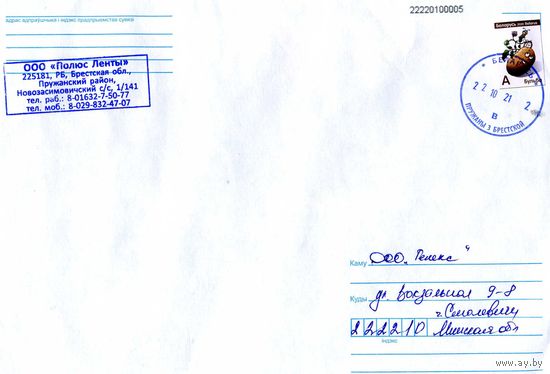 22220100005
адрас адпраўшчыка і індэкс прадпрыемства сувязі
ООО «Полюс Ленты»
225181, РБ, Брестская обл.,
Пружанский район,
Новозасимовичский с/с, 1/141
тел. раб.: 8-01632-7-50-77
тел. моб.: 8-029-832-47-07
Беларусь
А
Бульба
22 10 21 2
в
ПРУЖАНЫ 3 БРЕСТСКОЙ
Каму ООО "
Куды ул. Вокзальная 9-8
г. Смолевичи
222210 Минская обл
індэкс
www.ay.by